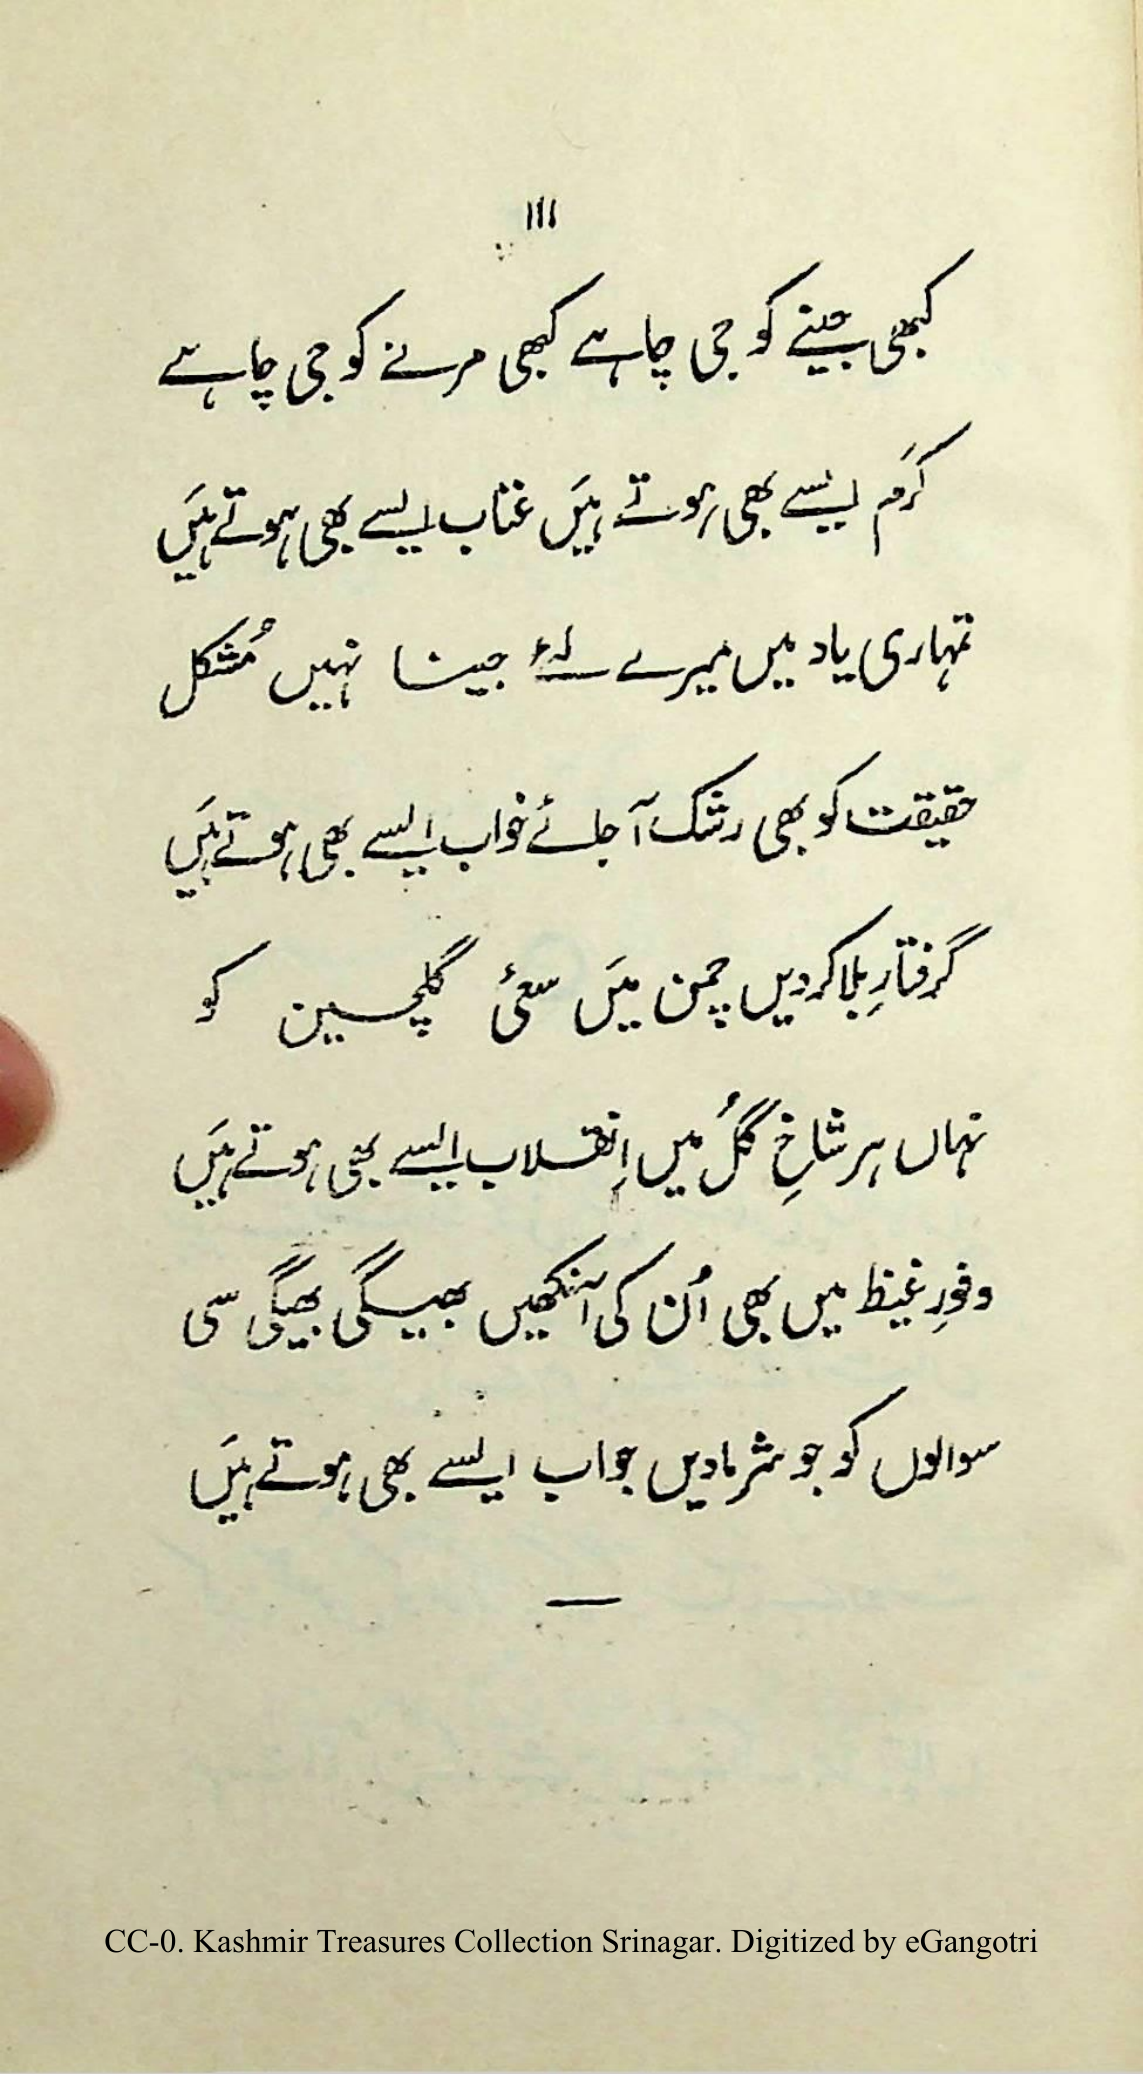 ۱۱۱
کبھی جینے کو جی چاہے کبھی مرنے کو جی چاہے
کرَم ایسے بھی ہوتے ہیَں عتاب ایسے بھی ہوتے ہیَں
تمہاری یاد میں میرے لئے جینا نہیں مُشکل
حقیقت کو بھی رشک آ جائے خواب ایسے بھی ہوتے ہیَں
گرفتارِ بلا کر دیں چمن میَں سعئ گلچین کو
نہاں ہر شاخِ گُل میں اِنقلاب ایسے بھی ہوتے ہیَں
وفورِ غیظ میں بھی اُن کی آنکھیں بھیگی بھیگی سی
سوالوں کو جو شرما دیں جواب ایسے بھی ہوتے ہیَں
CC-0. Kashmir Treasures Collection Srinagar. Digitized by eGangotri